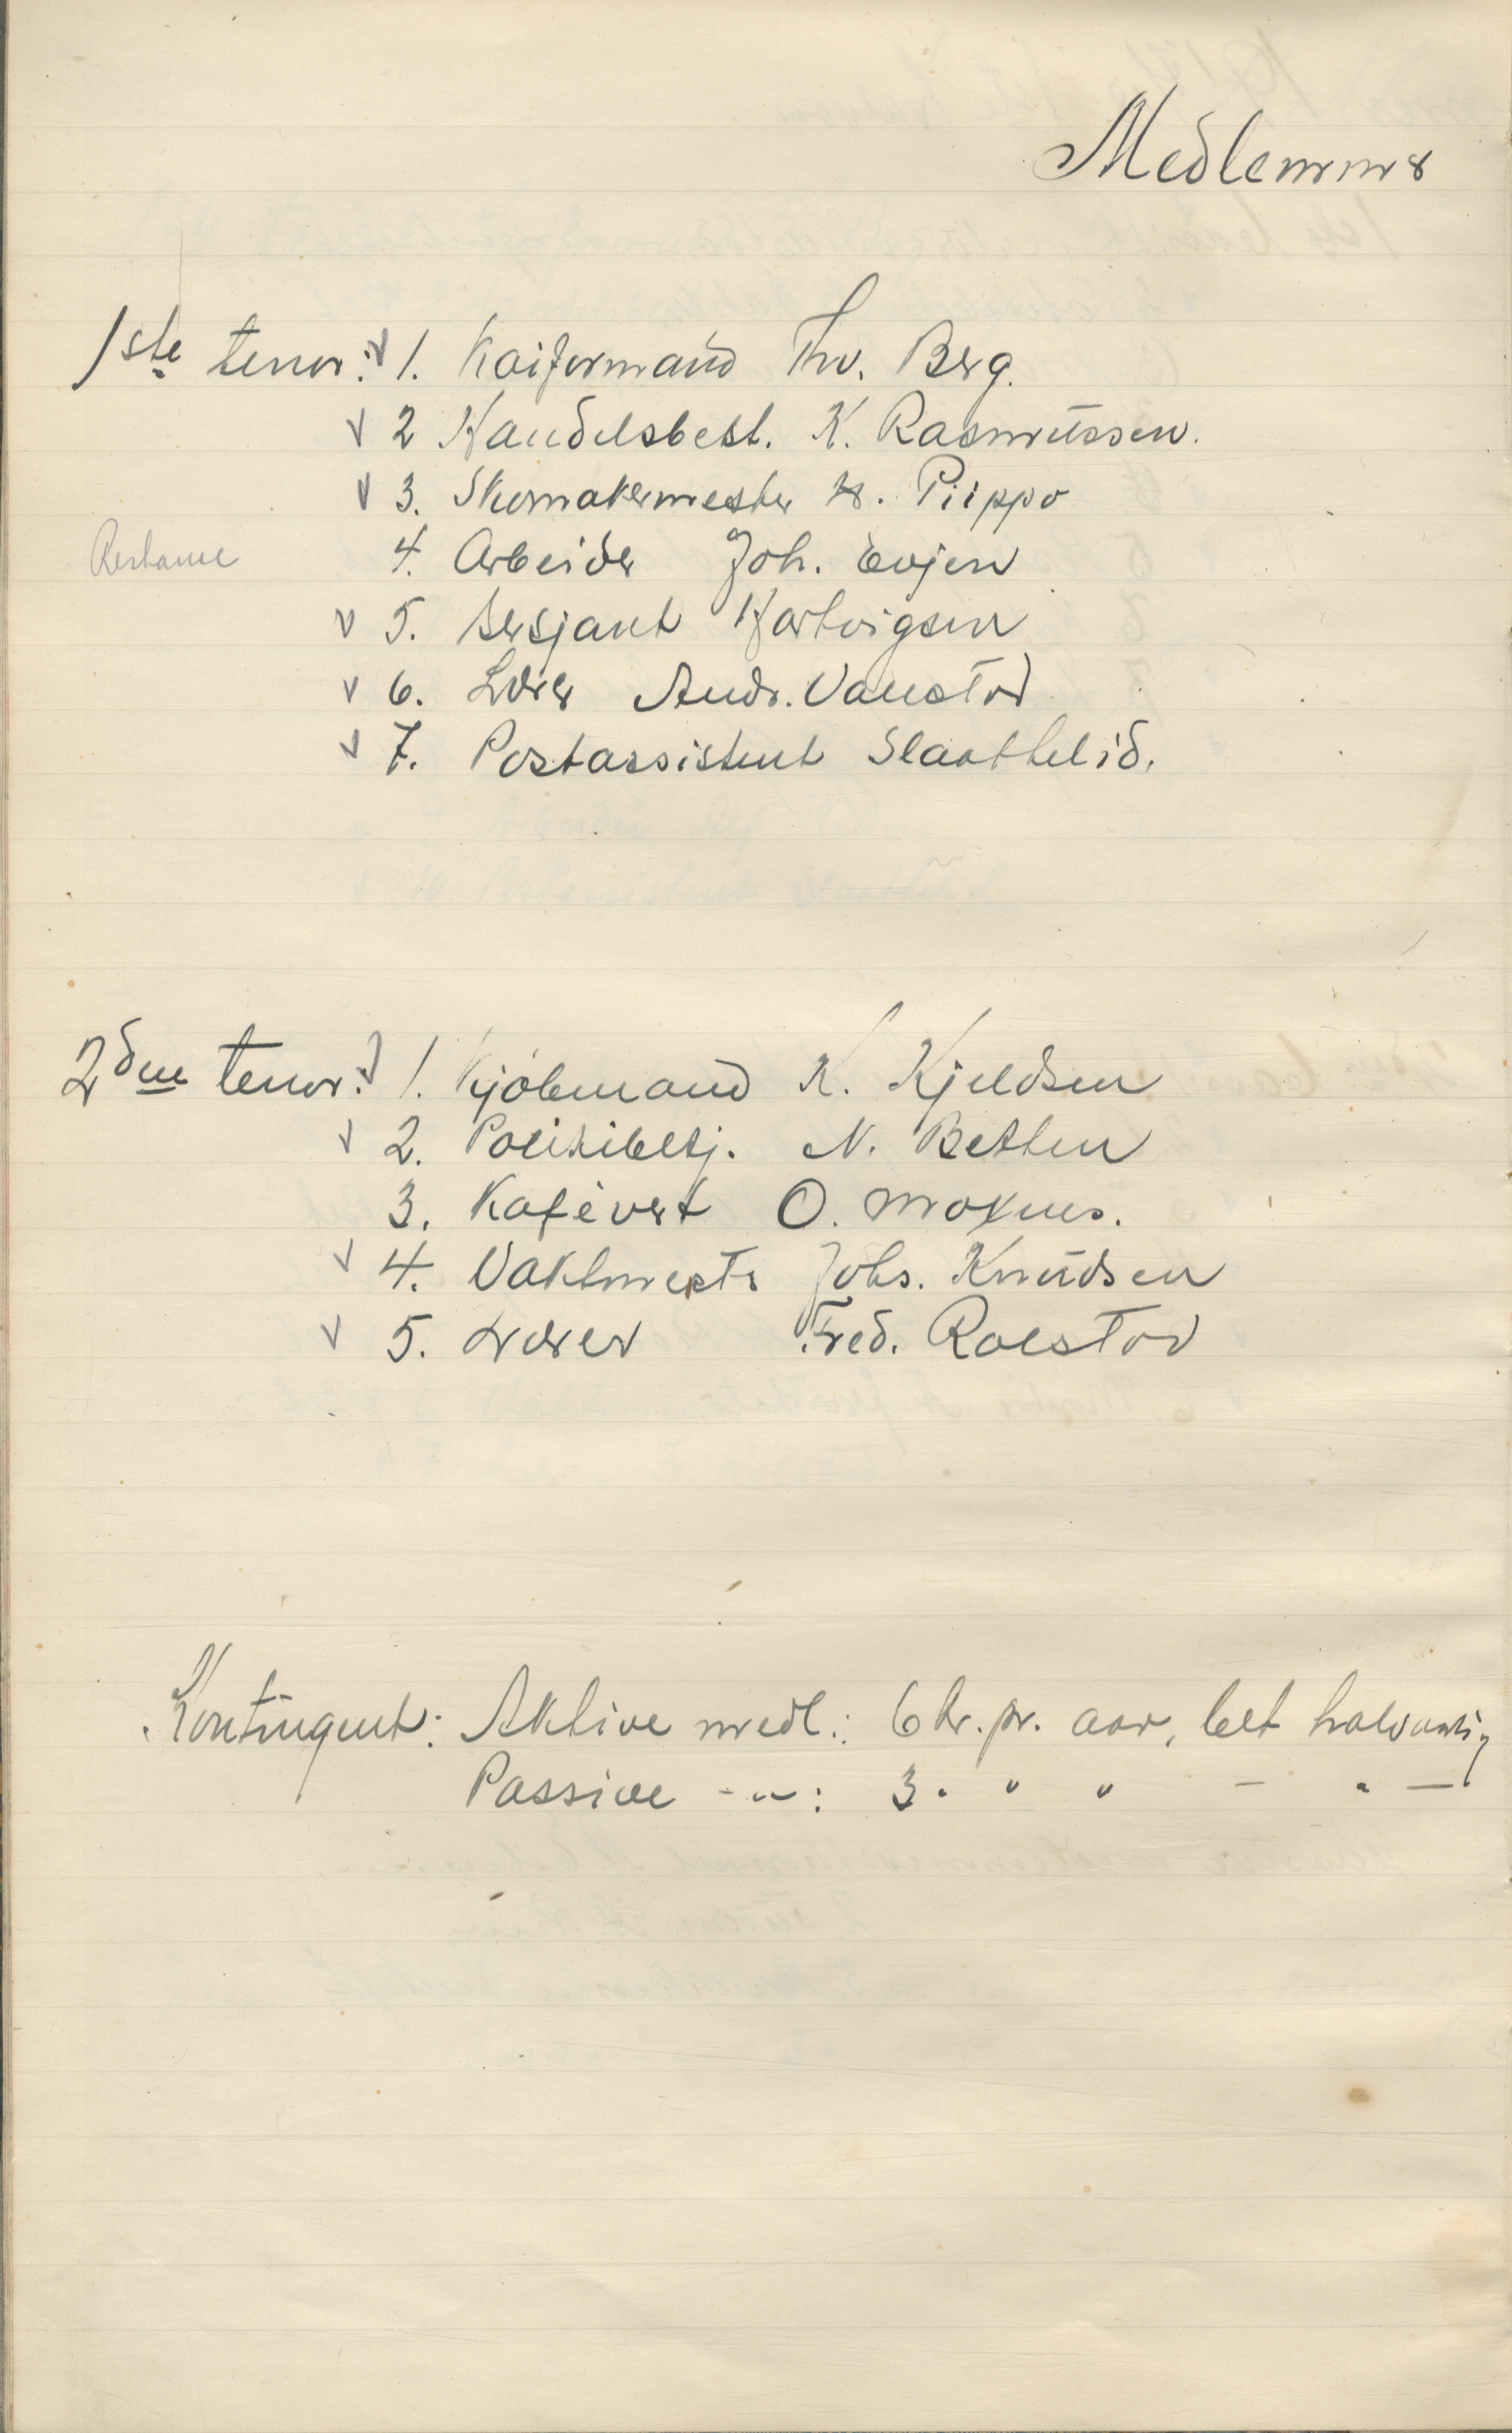 Medlemmer
1ste tenor: v 1. Kaiformand Thv. Berg.
v 2 Handelsbest. K. Rasmussen.
v 3. Skomakermester H. Piippo
Restanse 4. Arbeider Joh. Evjen
v 5. Sersjant Hartvigsen
v 6. Lærer Andr. Vanstad
v 7. Postassistent Slaattelid.
2den tenor: v 1. Kjøbmand K. Kjeldsen
v 2. Politibetj. N. Betten
3. Kafévert O. Moxnes.
v 4. Vaktmestr Johs. Knudsen
v 5. Lærer Fred. Rolstad
Kontingent: Aktive medl.: 6 kr. pr. aar, bet halvaarlig
Passive -"-: 3 " " " — " —